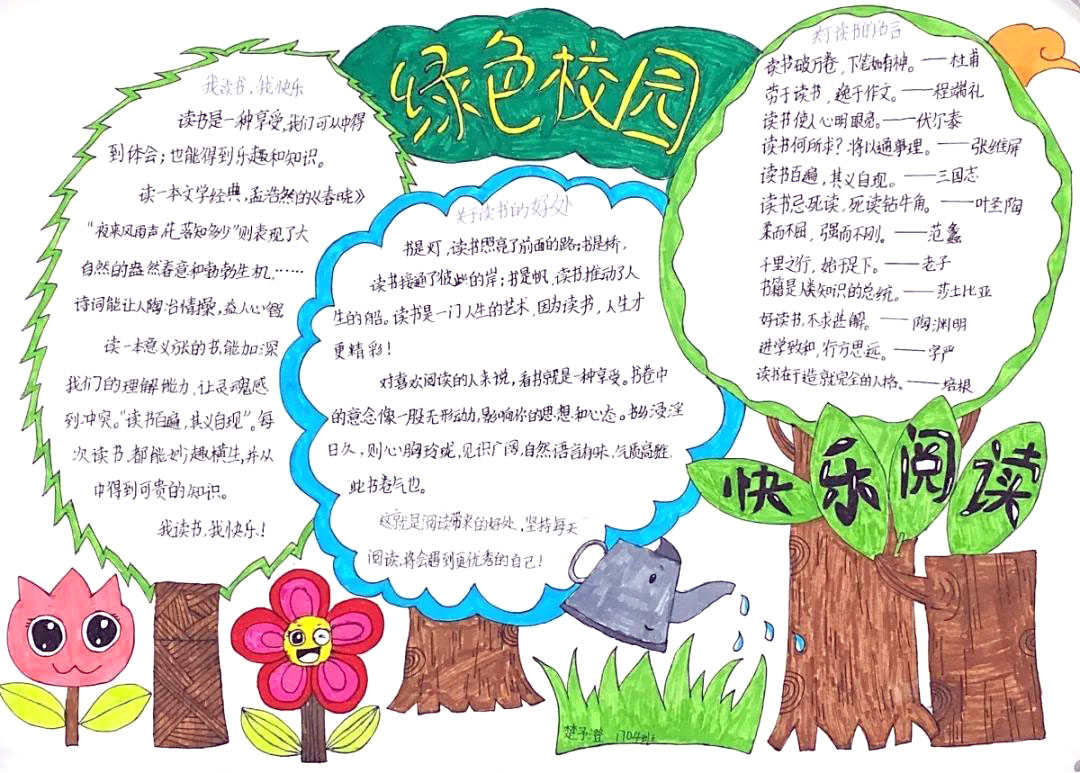 绿色校园
我读书,我快乐
读书是一种享受,我们可以从中得
到体会;也能得到乐趣和知识。
读一本文学经典,孟浩然的《春晓》
“夜来风雨声,花落知多少”则表现了大
自然的盎然春意和勃勃生机,……
诗词能让人陶冶情操,益人心智
读一本意义深的书,能加深
我们的理解能力,让灵魂感
到冲突。“读书百遍,其义自现”。每
次读书,都能妙趣横生,并从
中得到可贵的知识。
我读书,我快乐!
关于读书的好处
书是灯,读书照亮了前面的路;书是桥,
读书接通了彼此的岸;书是帆,读书推动了人
生的船。读书是一门人生的艺术,因为读书,人生才
更精彩!
对喜欢阅读的人来说,看书就是一种享受。书卷中
的意念像一股无形动力,影响你的思想和心态。书香浸淫
日久,则心胸玲珑,见识广阔,自然语言有味,气质高雅.
此书卷气也。
这就是阅读带来的好处,坚持每天
阅读,将会遇到更优秀的自己!
关于读书的名言
读书破万卷,下笔如有神。——杜甫
劳于读书,逸于作文。——程端礼
读书使人心明眼亮。——伏尔泰
读书何所求?将以通事理。——张维屏
读书百遍,其义自现。——三国志
读书忌死读,死读钻牛角。——叶圣陶
柔而不屈,强而不刚。——范蠡
千里之行,始于足下。——老子
书籍是人类知识的总统。——莎士比亚
好读书,不求甚解。——陶渊明
进学致和,行方思远。——字严
读书在于造就完全的人格。——培根
快乐阅读
楚予澄 1704班